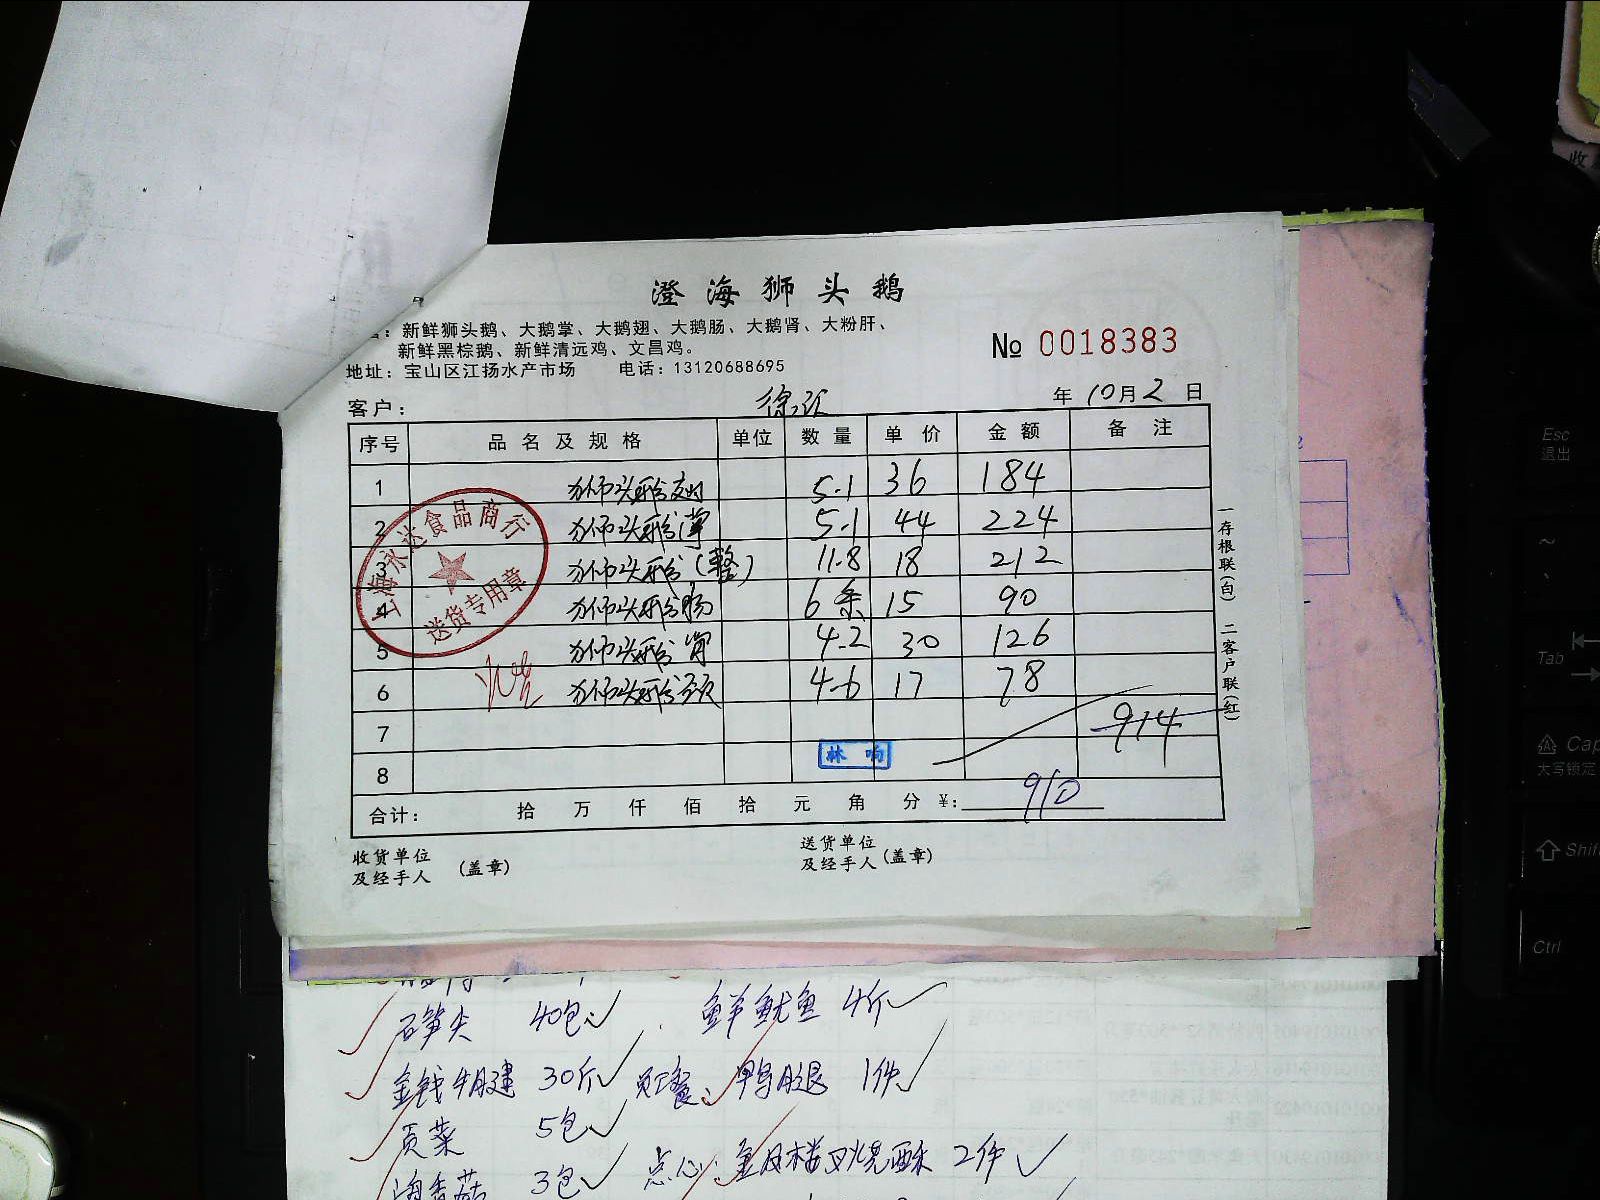 澄海狮头鹅
营：新鲜狮头鹅、大鹅掌、大鹅翅、大鹅肠、大鹅肾、大粉肝、
新鲜黑棕鹅、新鲜清远鸡、文昌鸡。
№ 0018383
地址：宝山区江扬水产市场 电话：13120688695
客户： 年 10月2日
序号 品名及规格 单位 数量 单价 金额 备注
1 狮头鹅 5.1 36 184
2 狮头鹅 5.1 44 224
3 狮头鹅(整) 11.8 18 212
4 狮头鹅肠 6条 15 90
5 狮头鹅肾 4.2 30 126
6 狮头鹅颈 4.6 17 78
7 914
8
合计： 拾万仟佰拾元角分 ¥：910
上海永达食品商行
送货专用章
林响
一存根联(白) 二客户联(红)
收货单位
及经手人 (盖章)
送货单位
及经手人 (盖章)
石笋尖 40包 鲜鱿鱼 4斤
金钱牛腱 30斤 员工餐：鸭腿 1件
贡菜 5包
海香菇 3包 点心： 叉烧酥 2件
Esc
退出
~
Tab
Cap
大写锁定
Shif
Ctrl